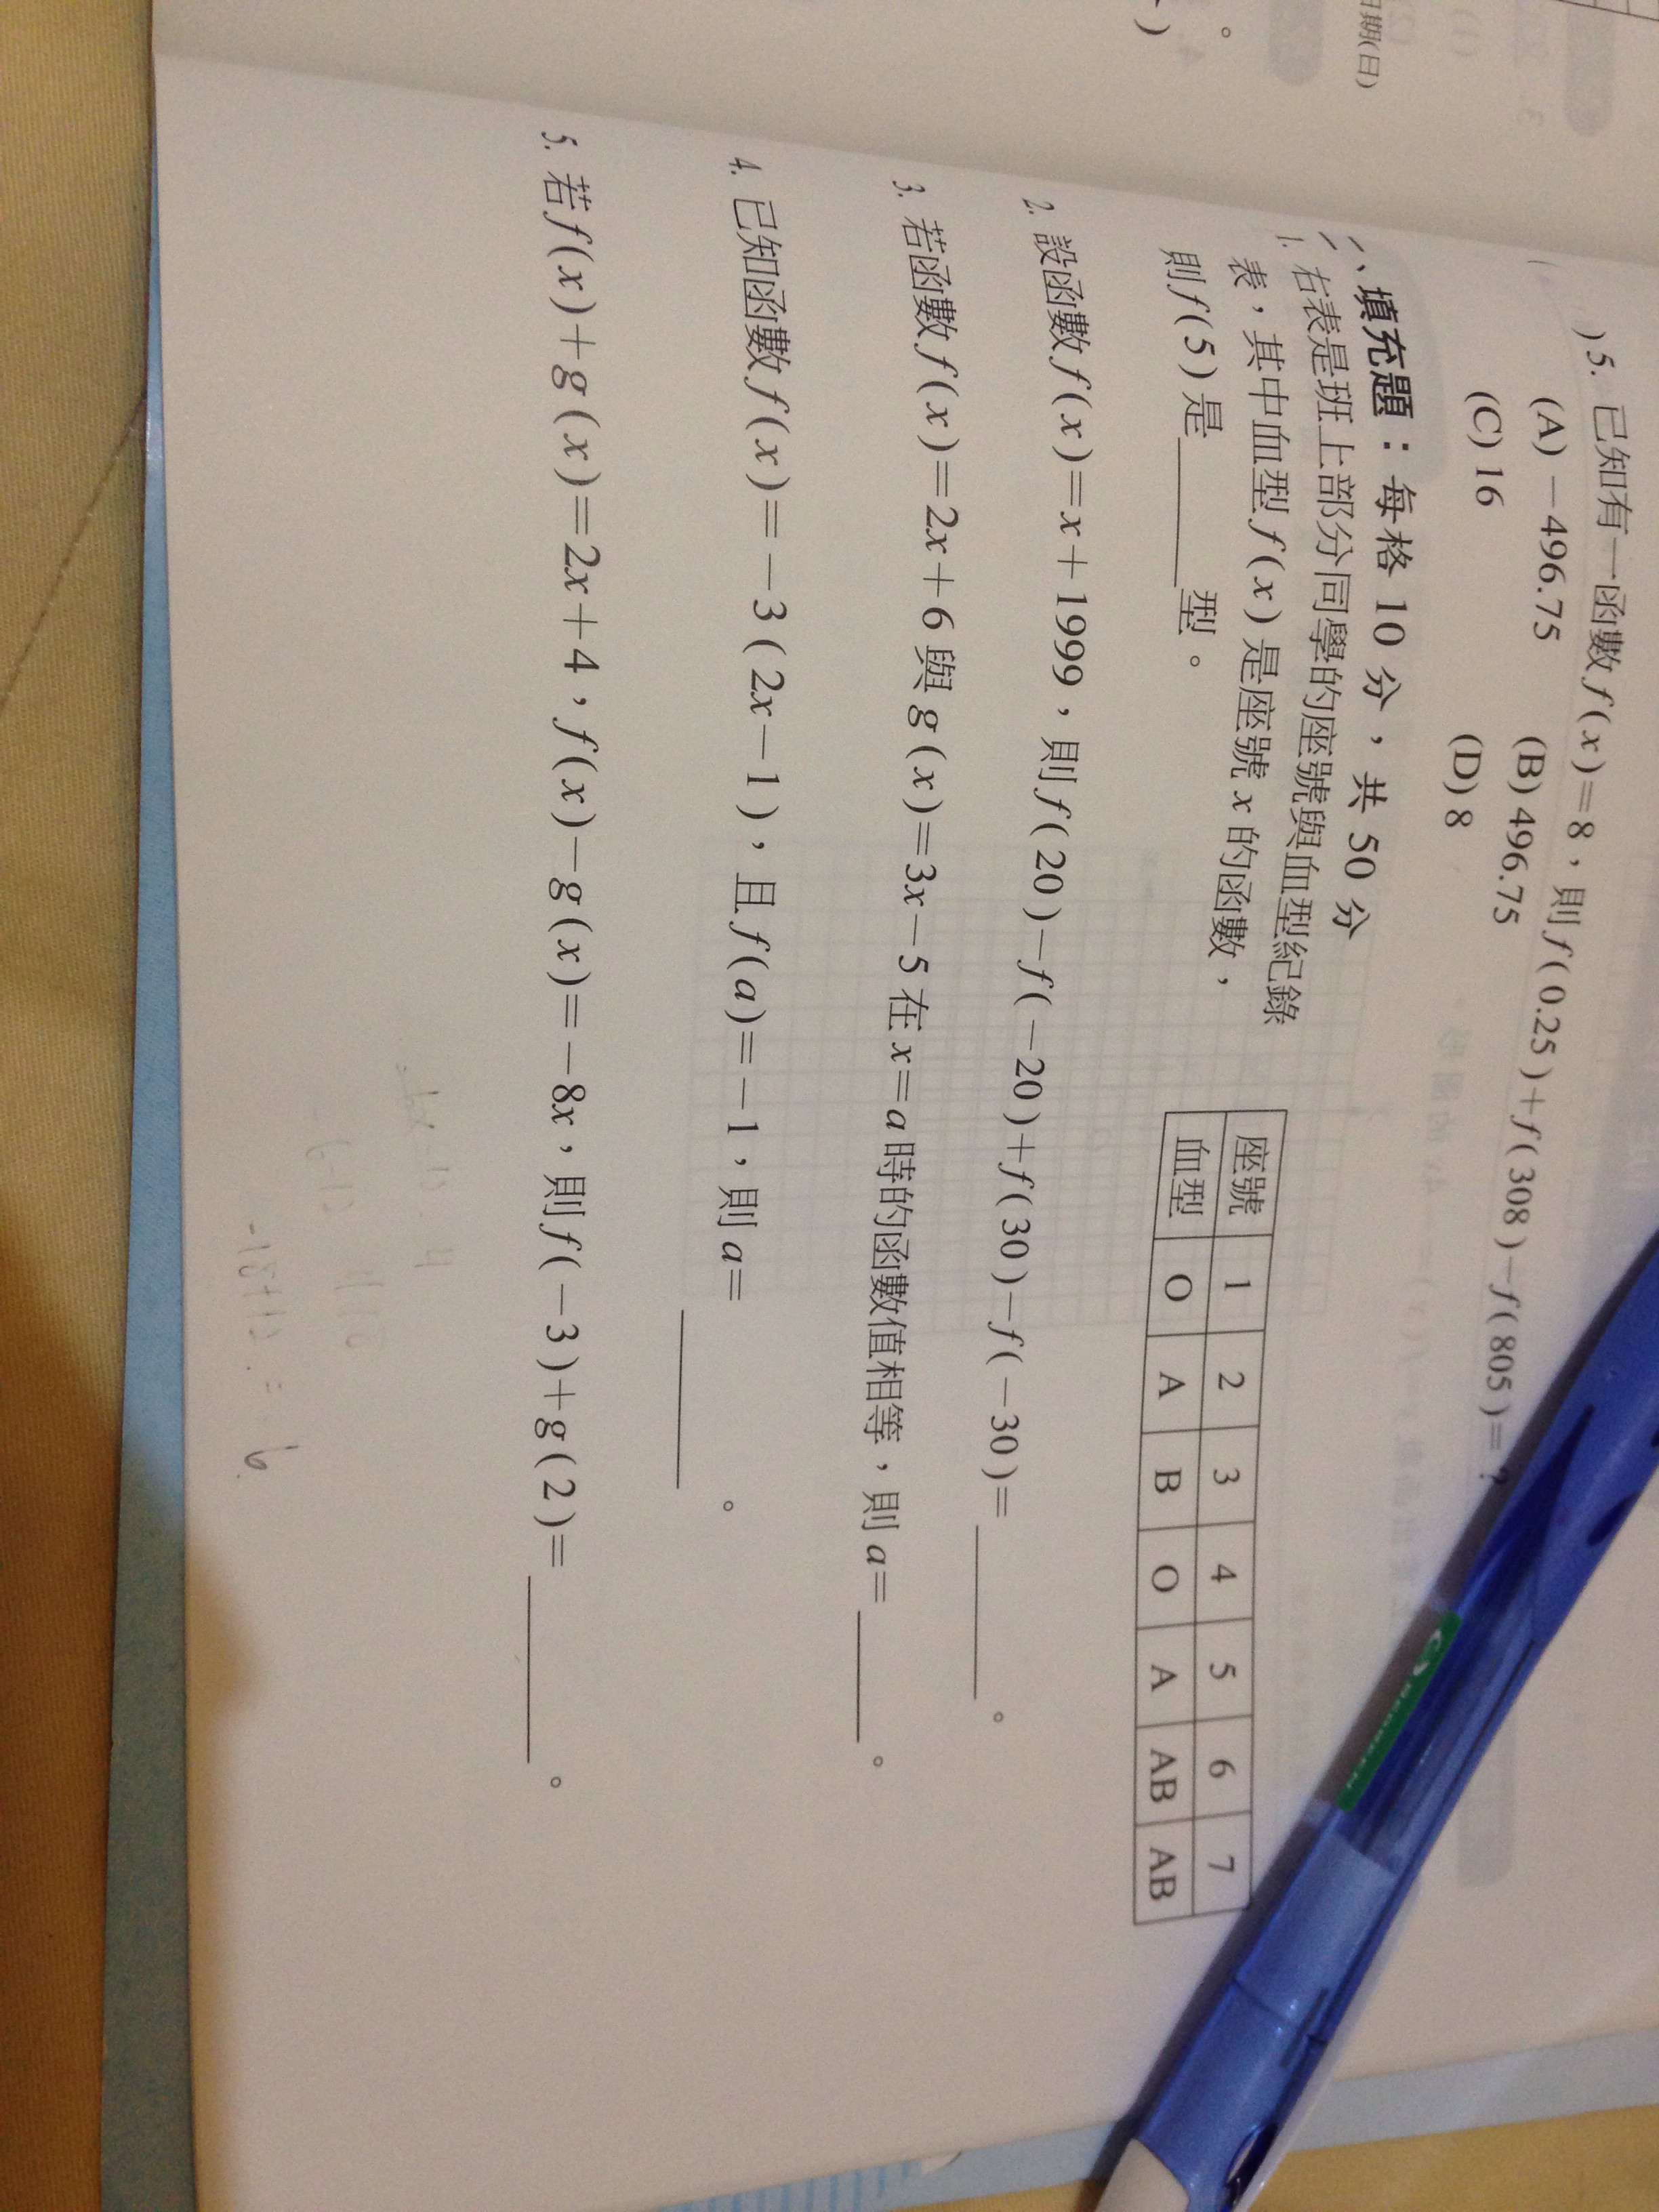 期(日)
)5. 已知有一函數 f(x)=8，則 f(0.25)+f(308)-f(805)=?
(A) -496.75 (B) 496.75
(C) 16 (D) 8
、填充題：每格 10 分，共 50 分
1. 右表是班上部分同學的座號與血型紀錄
表，其中血型 f(x) 是座號 x 的函數，
則 f(5) 是______型。
座號 1 2 3 4 5 6 7
血型 O A B O A AB AB
2. 設函數 f(x)=x+1999，則 f(20)-f(-20)+f(30)-f(-30)=______。
3. 若函數 f(x)=2x+6 與 g(x)=3x-5 在 x=a 時的函數值相等，則 a=______。
4. 已知函數 f(x)=-3(2x-1)，且 f(a)=-1，則 a=______。
5. 若 f(x)+g(x)=2x+4，f(x)-g(x)=-8x，則 f(-3)+g(2)=______。